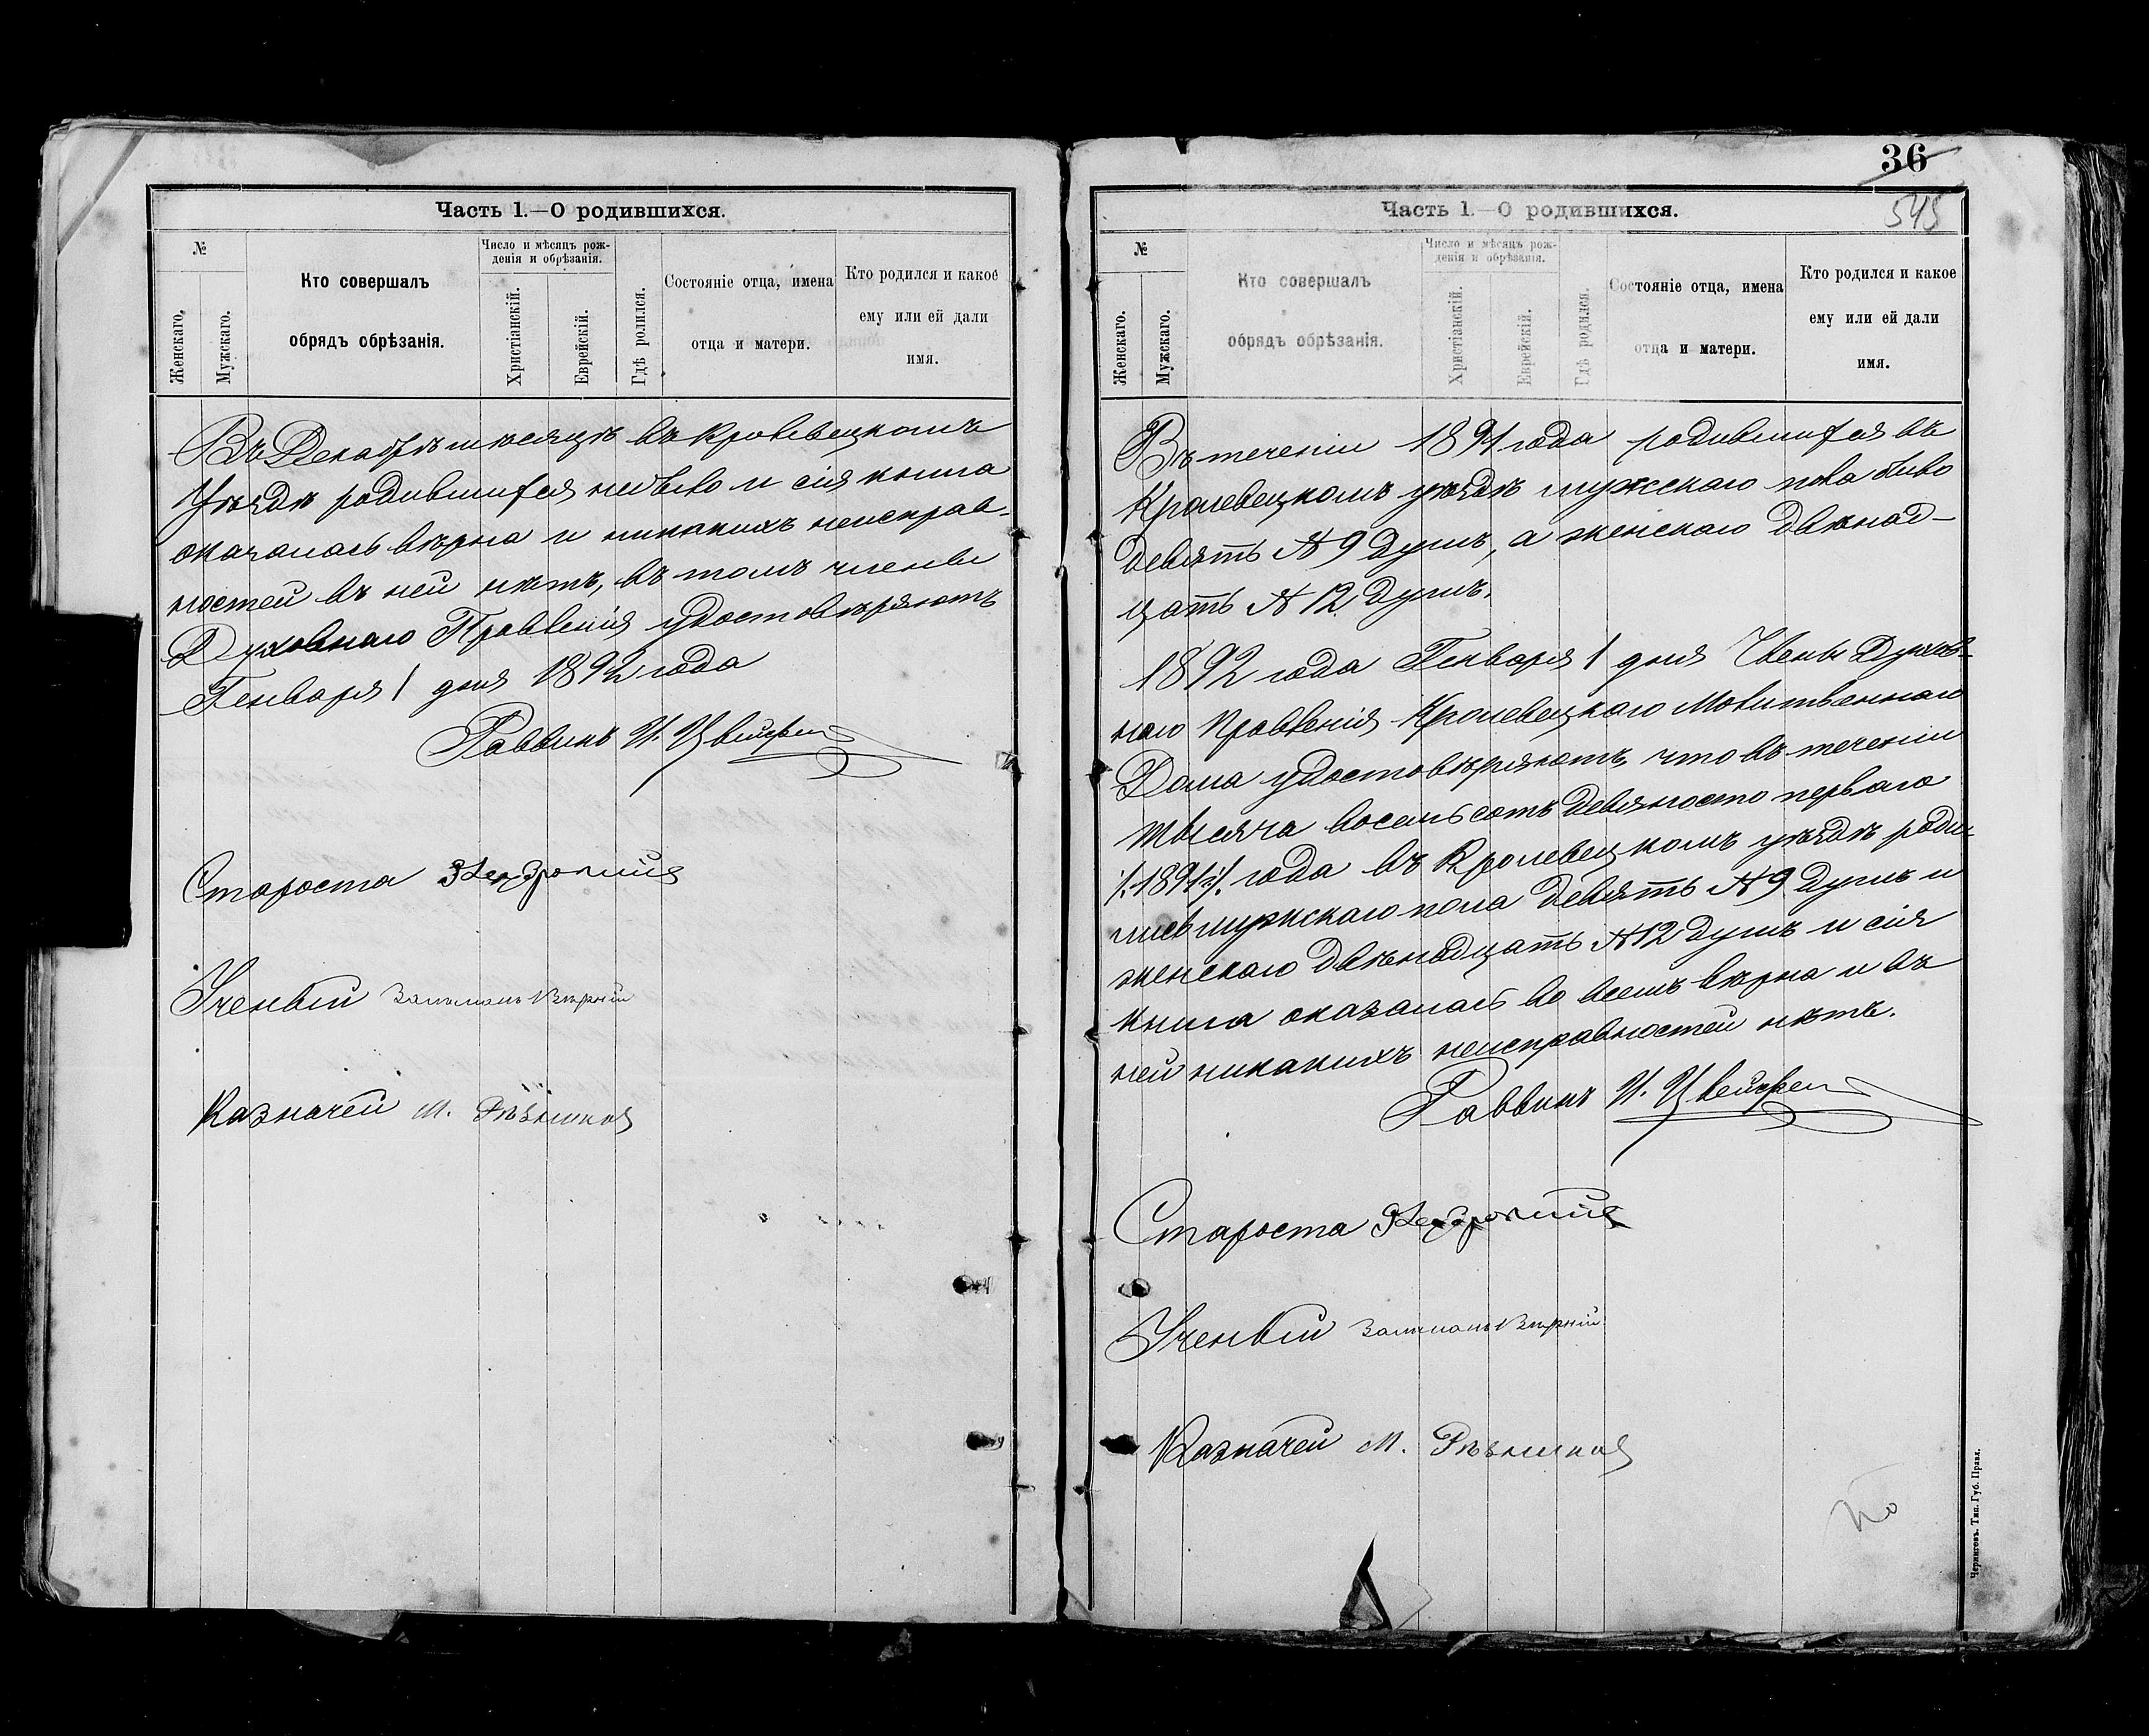 Часть 1.—О родившихся.
№
Женскаго.
Мужскаго.
Кто совершалъ
обрядъ обрѣзанія.
Число и мѣсяцъ рож-
денія и обрѣзанія.
Христіанскій.
Еврейскій.
Гдѣ родился.
Состояніе отца, имена
отца и матери.
Кто родился и какое
ему или ей дали
имя.
Въ Декабрѣ мѣсяцѣ въ Кролевецкомъ
Уѣздѣ родившихся небыло и сія книга
оказалась вѣрна и никакихъ неисправ-
ностей въ ней нѣтъ, въ томъ члены
Духовнаго Правленія удостовѣряютъ
Генваря 1 дня 1892 года
Раввинъ И.
Староста
Ученый Залманъ
Казначей М.
36
545
Часть 1.—О родившихся.
№
Женскаго.
Мужскаго.
Кто совершалъ
обрядъ обрѣзанія.
Число и мѣсяцъ рож-
денія и обрѣзанія.
Христіанскій.
Еврейскій.
Гдѣ родился.
Состояніе отца, имена
отца и матери.
Кто родился и какое
ему или ей дали
имя.
Въ теченіи 1891 года родившихся въ
Кролевецкомъ уѣздѣ мужскаго пола было
девять № 9 душъ, а женскаго двѣнад-
цать № 12 душъ.
1892 года Генваря 1 дня Члены Духов-
наго Правленія Кролевецкаго Молитвеннаго
Дома удостовѣряютъ, что въ теченіи
тысяча восемьсотъ девяносто перваго
/:1891:/ года въ Кролевецкомъ уѣздѣ роди-
лись мужскаго пола девять № 9 душъ и
женскаго двѣнадцать № 12 душъ и сія
книга оказалась во всемъ вѣрна и въ
ней никакихъ неисправностей нѣтъ.
Раввинъ И.
Староста
Ученый Залманъ
Казначей М.
Черниговъ. Тип. Губ. Правл.